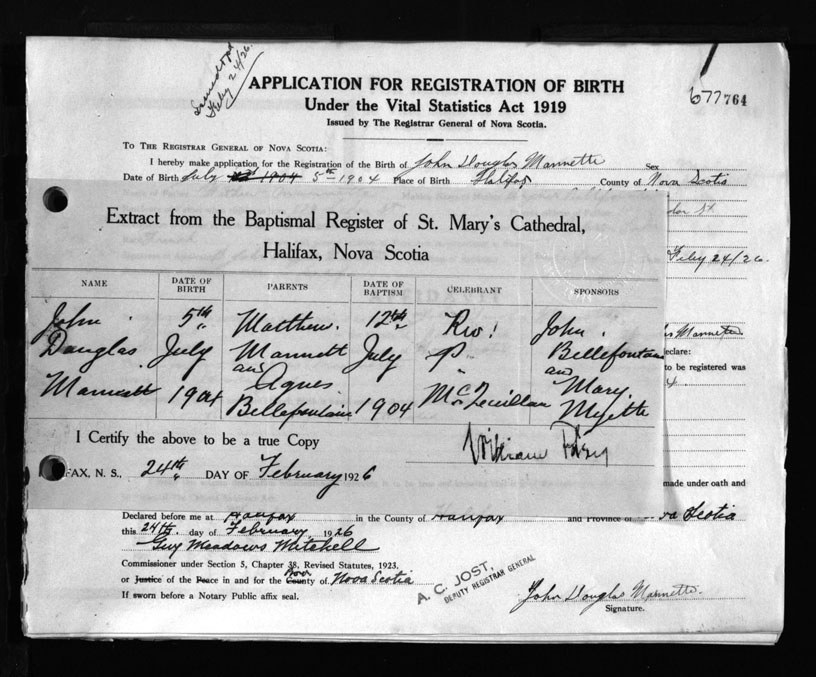 Feby 24/26
APPLICATION FOR REGISTRATION OF BIRTH
Under the Vital Statistics Act 1919
Issued by The Registrar General of Nova Scotia.
677764
TO THE REGISTRAR GENERAL OF NOVA SCOTIA:
I hereby make application for the Registration of the Birth of John Douglas Mannette Sex
Date of Birth July 1904 5th 1904 Place of Birth Halifax County of Nova Scotia
St
Feby 24/26.
Extract from the Baptismal Register of St. Mary's Cathedral,
Halifax, Nova Scotia
NAME DATE OF BIRTH PARENTS DATE OF BAPTISM CELEBRANT SPONSORS
John 5th Matthew. 12th Rev! John.
Douglas July Mannett July P Bellefontaine
and and
Mannett 1904 Agnes Bellefontaine 1904 McQuillan Mary Myette
I Certify the above to be a true Copy
FAX, N. S., 24th DAY OF February 1926
William
Mannette
eclare:
to be registered was
4.
made under oath and
Declared before me at Halifax in the County of Halifax and Province of Nova Scotia
this 24th. day of February, 1926
Guy Meadows Mitchell
Commissioner under Section 5, Chapter 38, Revised Statutes, 1923.
or Justice of the Peace in and for the County of Nova Scotia
If sworn before a Notary Public affix seal.
A. C. JOST,
DEPUTY REGISTRAR GENERAL
John Douglas Mannette.
Signature.